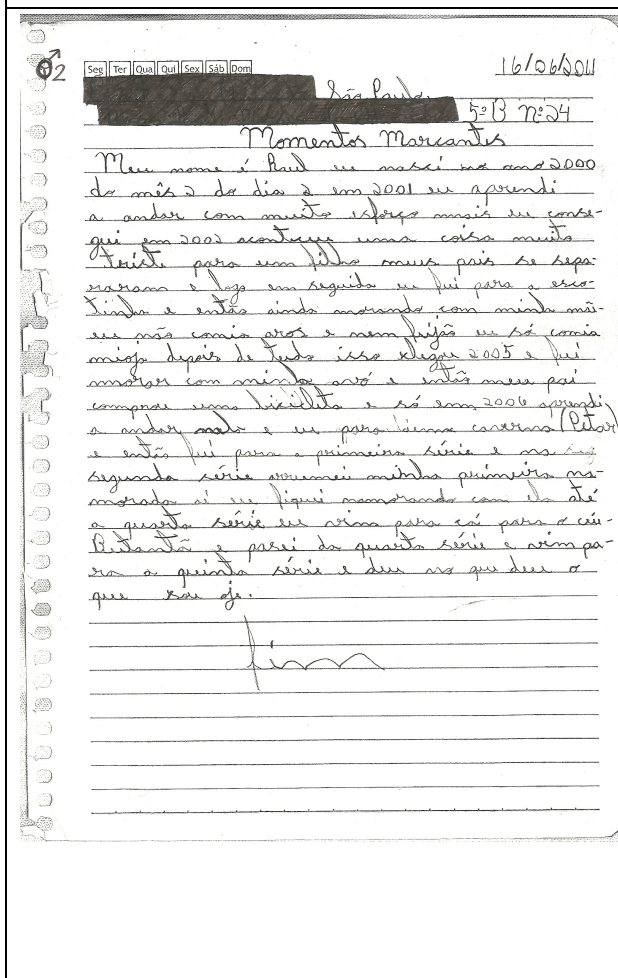 ♂2
Seg Ter Qua Qui Sex Sáb Dom
16/06/2011
São Paulo,
5º B nº 24
Momentos Marcantes
Meu nome é Raul eu nasci no ano 2000
do mês 2 do dia 2 em 2001 eu aprendi
a andar com muito esforço mais eu conse-
gui em 2002 aconteceu uma coisa muito
triste para um filho meus pais se sepa-
raram e logo em seguida eu fui para a esco-
linha e então ainda morando com minha mãi
eu não comia aros e nem feijão eu só comia
miojo depois de tudo isso xhegou 2005 e fui
morar com minha avó e então meu pai
comprou uma bicicleta e só em 2006 aprendi
a andar e eu para uma caverna (Petar)
e então fui para a primeira série e na seg
segunda série arrumei minha primeira na-
morada ai eu fiquei namorando com ela até
a quarta série eu vim para cá para o céu-
Butantã e pasei da quarta série e vim pa-
ra a quinta série e deu no que deu o
que sou oje.
fim